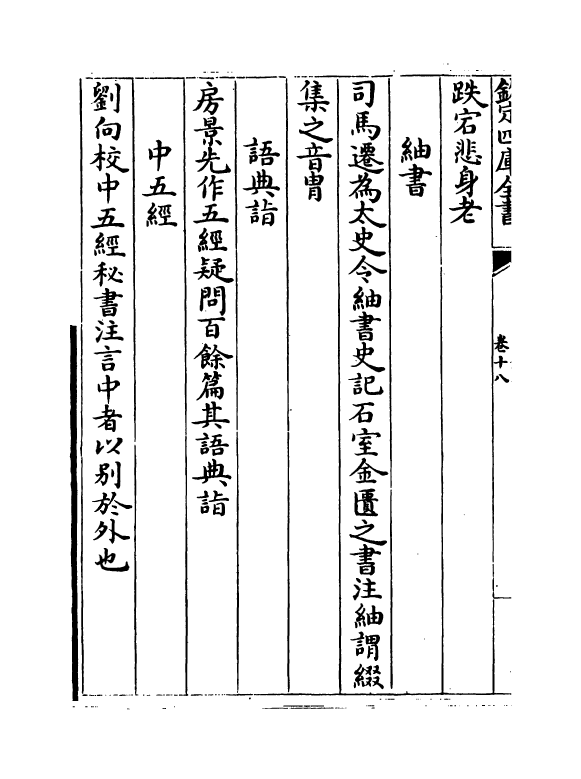 欽定四庫全書
卷十八
跌宕悲身老
紬書
司馬遷為太史令紬書史記石室金匱之書注紬謂綴
集之音冑
語典詣
房景先作五經疑問百餘篇其語典詣
中五經
劉向校中五經秘書注言中者以别於外也